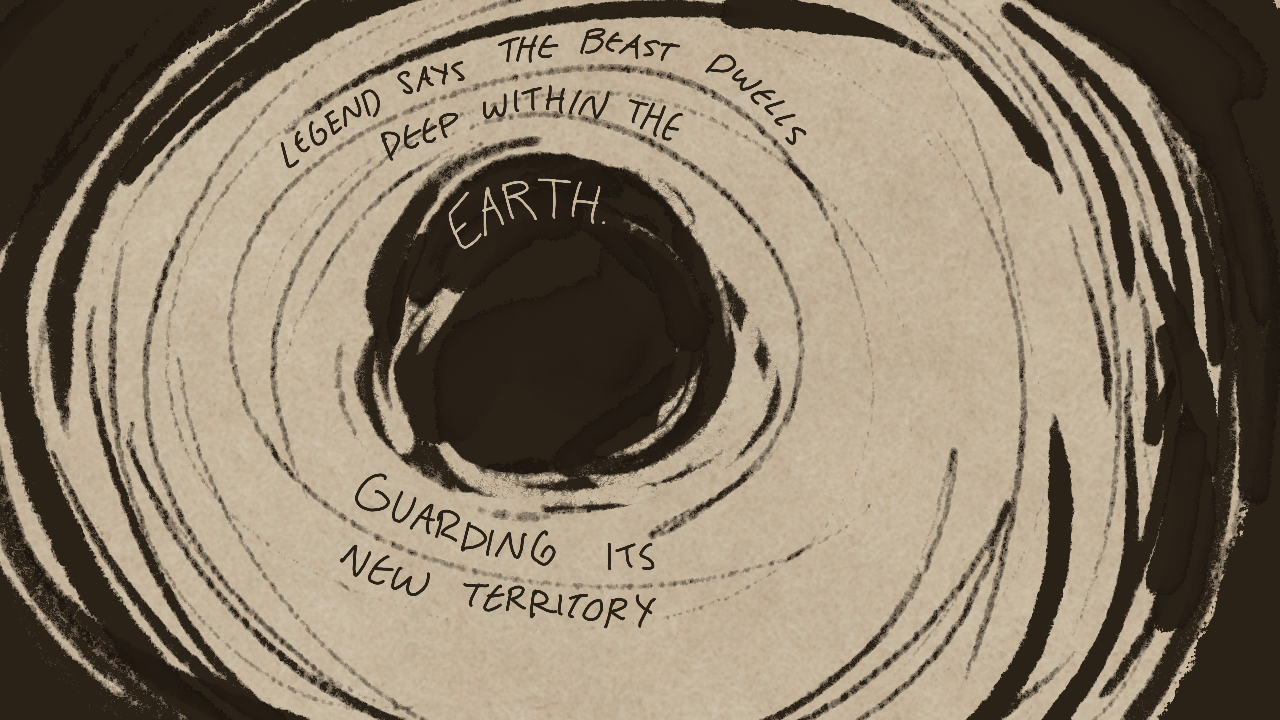 LEGEND SAYS THE BEAST DWELLS
DEEP WITHIN THE
EARTH.
GUARDING ITS
NEW TERRITORY